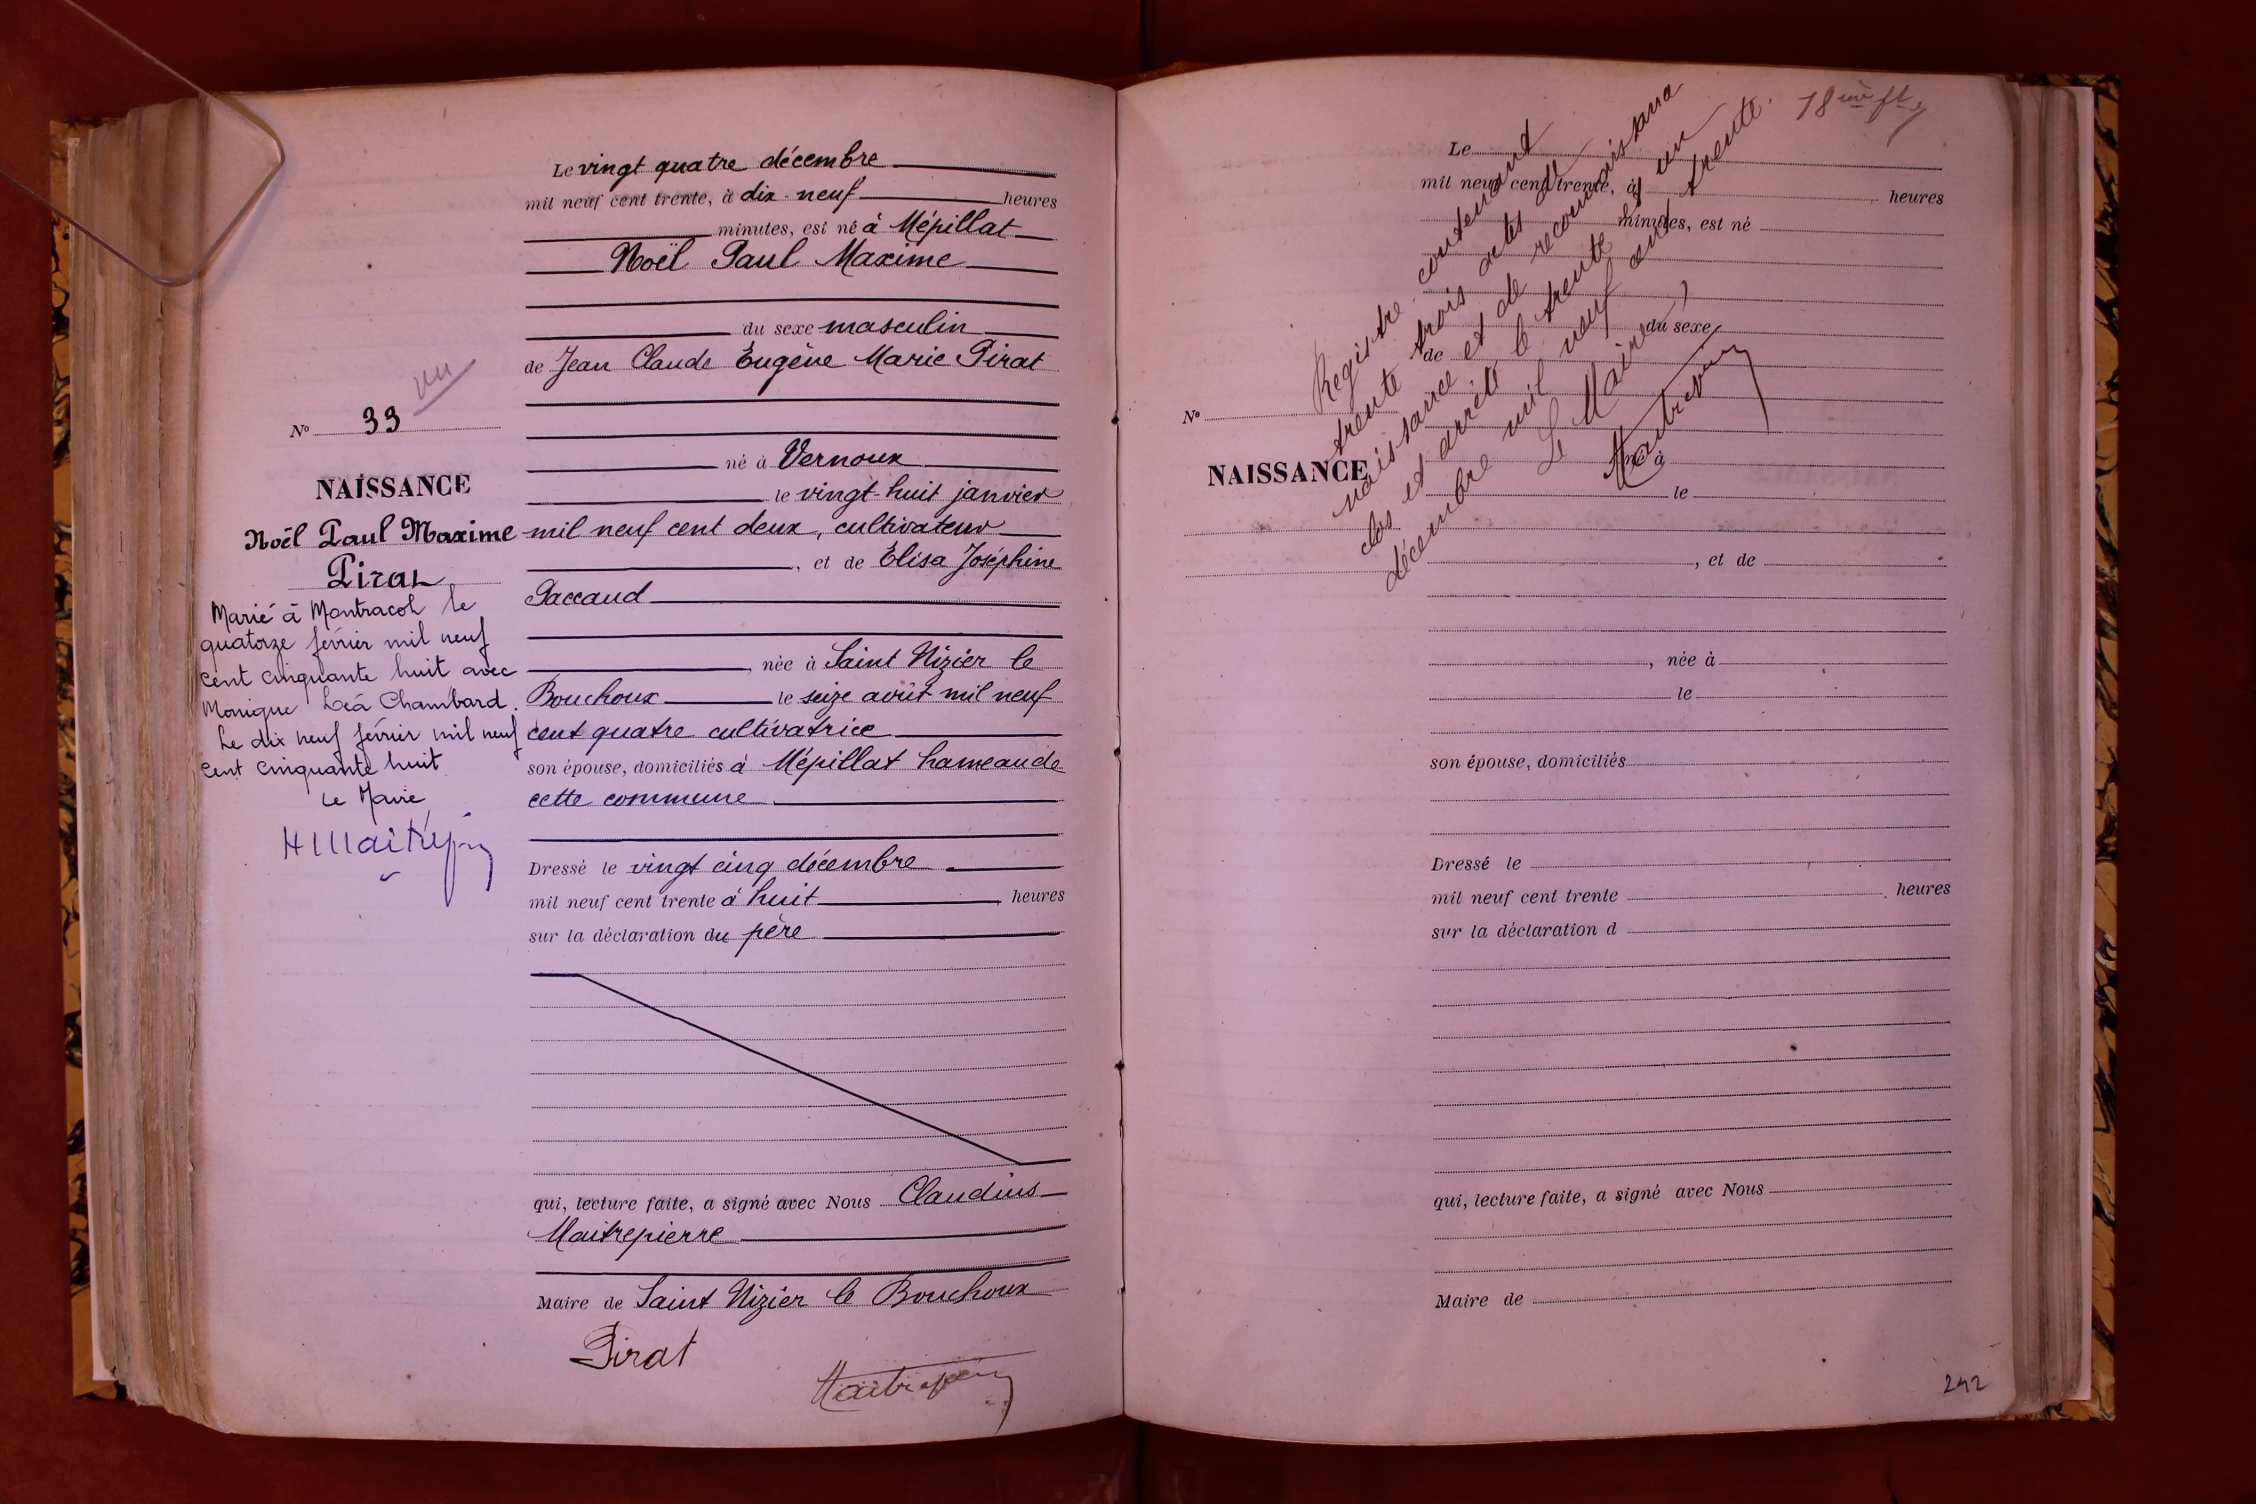 Le vingt quatre décembre
mil neuf cent trente, à dix-neuf heures
minutes, est né à Mépillat
Noël Paul Maxime
du sexe masculin
de Jean Claude Eugène Marie Pirat
vu
N° 33
né à Vernoux
NAISSANCE
le vingt-huit janvier
Noël Paul Maxime
mil neuf cent deux, cultivateur
Pirat
, et de Élisa Joséphine
Paccaud
Marié à Montracol le
quatorze février mil neuf
cent cinquante huit avec
Monique Léa Chambard.
Le dix neuf février mil neuf
cent cinquante huit
Le Maire
, née à Saint Nizier le
Bouchoux le seize août mil neuf
cent quatre cultivatrice
son épouse, domiciliés à Mépillat hameau de
cette commune
Dressé le vingt cinq décembre
mil neuf cent trente à huit heures
sur la déclaration du père
qui, lecture faite, a signé avec Nous Claudius
Maitrepierre
Maire de Saint Nizier le Bouchoux
Pirat
18me ft
Registre contenant
trente trois actes de
naissance et de reconnaissance
clos et arrêté le trente et un
décembre mil neuf cent trente.
Le Maire,
Le
mil neuf cent trente, à heures
minutes, est né
du sexe
de
N°
né à
NAISSANCE
le
, et de
, née à
le
son épouse, domiciliés
Dressé le
mil neuf cent trente heures
sur la déclaration d
qui, lecture faite, a signé avec Nous
Maire de
242